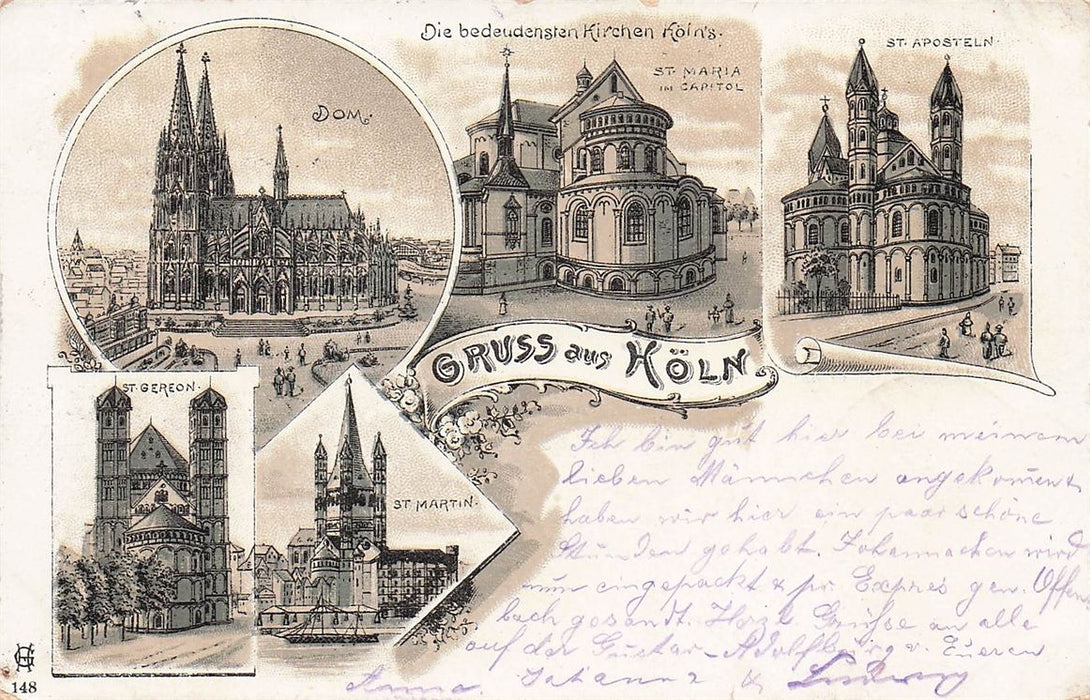 Die bedeudensten Kirchen Köln's.
DOM.
ST. MARIA
IM CAPITOL
ST. APOSTELN.
GRUSS aus KÖLN
ST. GEREON.
ST. MARTIN.
Ich bin gut hier bei meinem
lieben Männchen angekommen,
haben wir hier ein paar schöne
Stunden gehabt. Johannachen wird
nun eingepackt & pr. Expres gen. Offen
bach gesandt. Herzl Grüße an alle
auf der Gustav-Adolfburg v. Eueren
Anna. Johanna & Ludwig
148